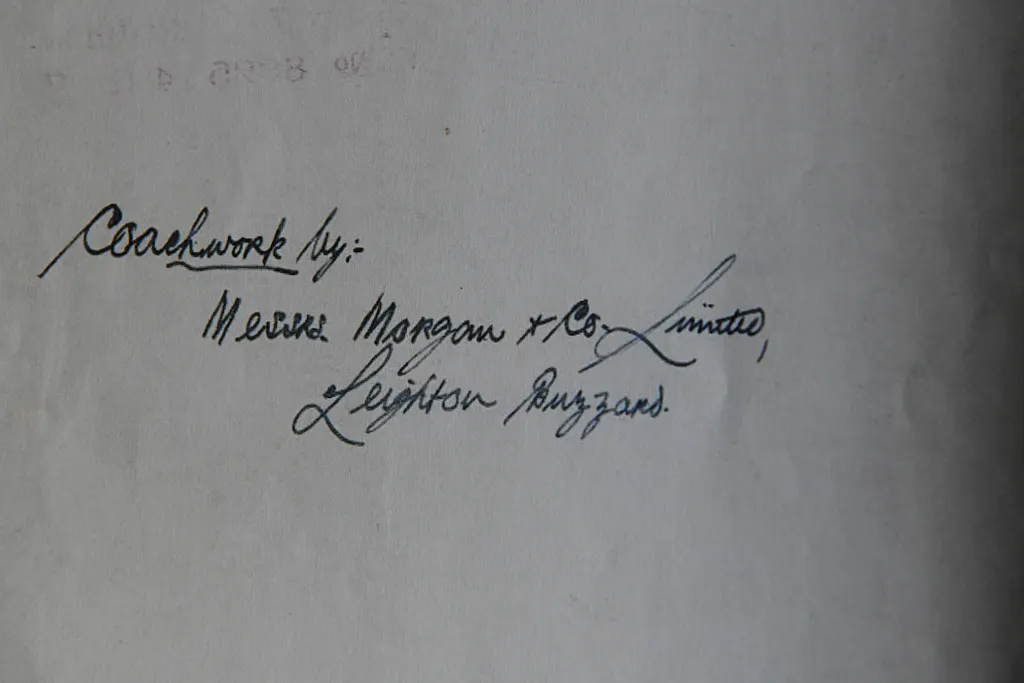 Coachwork by:-
Messrs. Morgan + Co. Limited,
Leighton Buzzard.